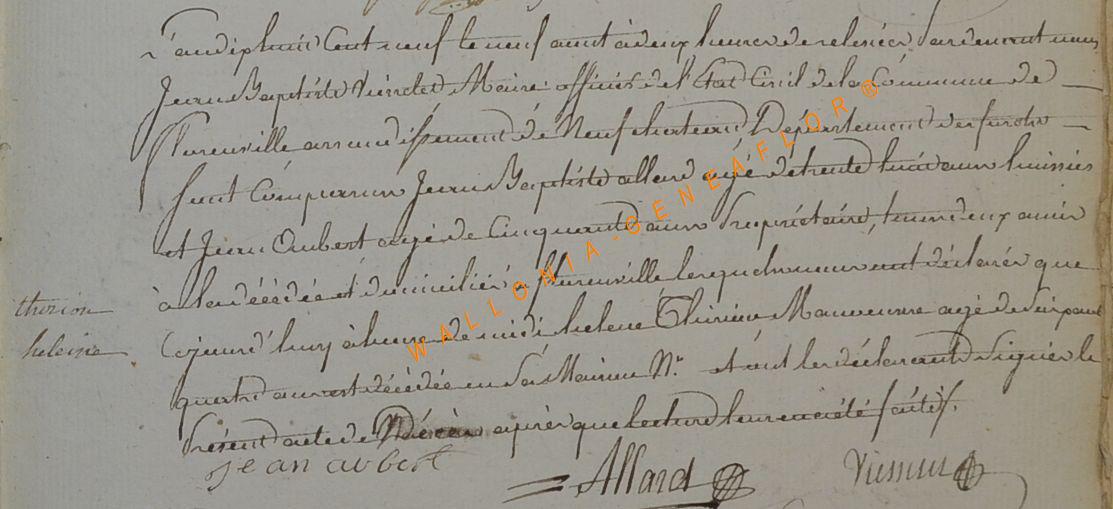 L'an dix huit Cent neuf le neuf aout à deux heures de relevée, pardevant nous
Jean Baptiste Maire officier de l'Etat Civil de la Commune de
Florenville arrondissement de Neufchateau Département des forets
sont Comparus Jean Baptiste allard agé de trente huit ans huissier
et Jean Aubert agé de Cinquante ans Propriétaire, tous deux amis
à la décédée et domiciliés à florenville lesquels nous ont déclaré que
therion
Cejourd'huy à heure de midi helene Manoeuvre agé de soixante
heleine
quatre ans est décédée en sa Maison N.º et ont les déclarants Signés le
Présent acte de Décès après que lecture leur en a été faite.
jean aubert
Allard
WALLONIA-GENEAFLOR®